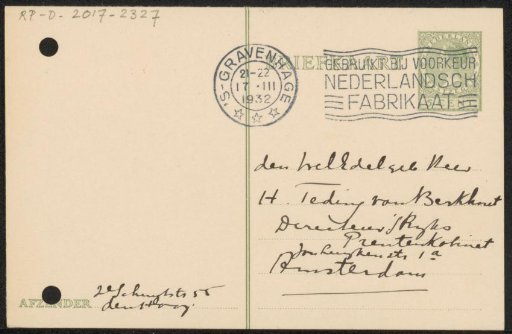 RP-D-2017-2327
'S-GRAVENHAGE
21-22
17 III
1932
GEBRUIKT BIJ VOORKEUR
NEDERLANDSCH
FABRIKAAT
den WelEdelgeb Heer
H. Teding van Berkhout
Directeur 's Ryks
Prentenkabinet
Jan Luykenstr 1a
Amsterdam
AFZENDER
den Haag